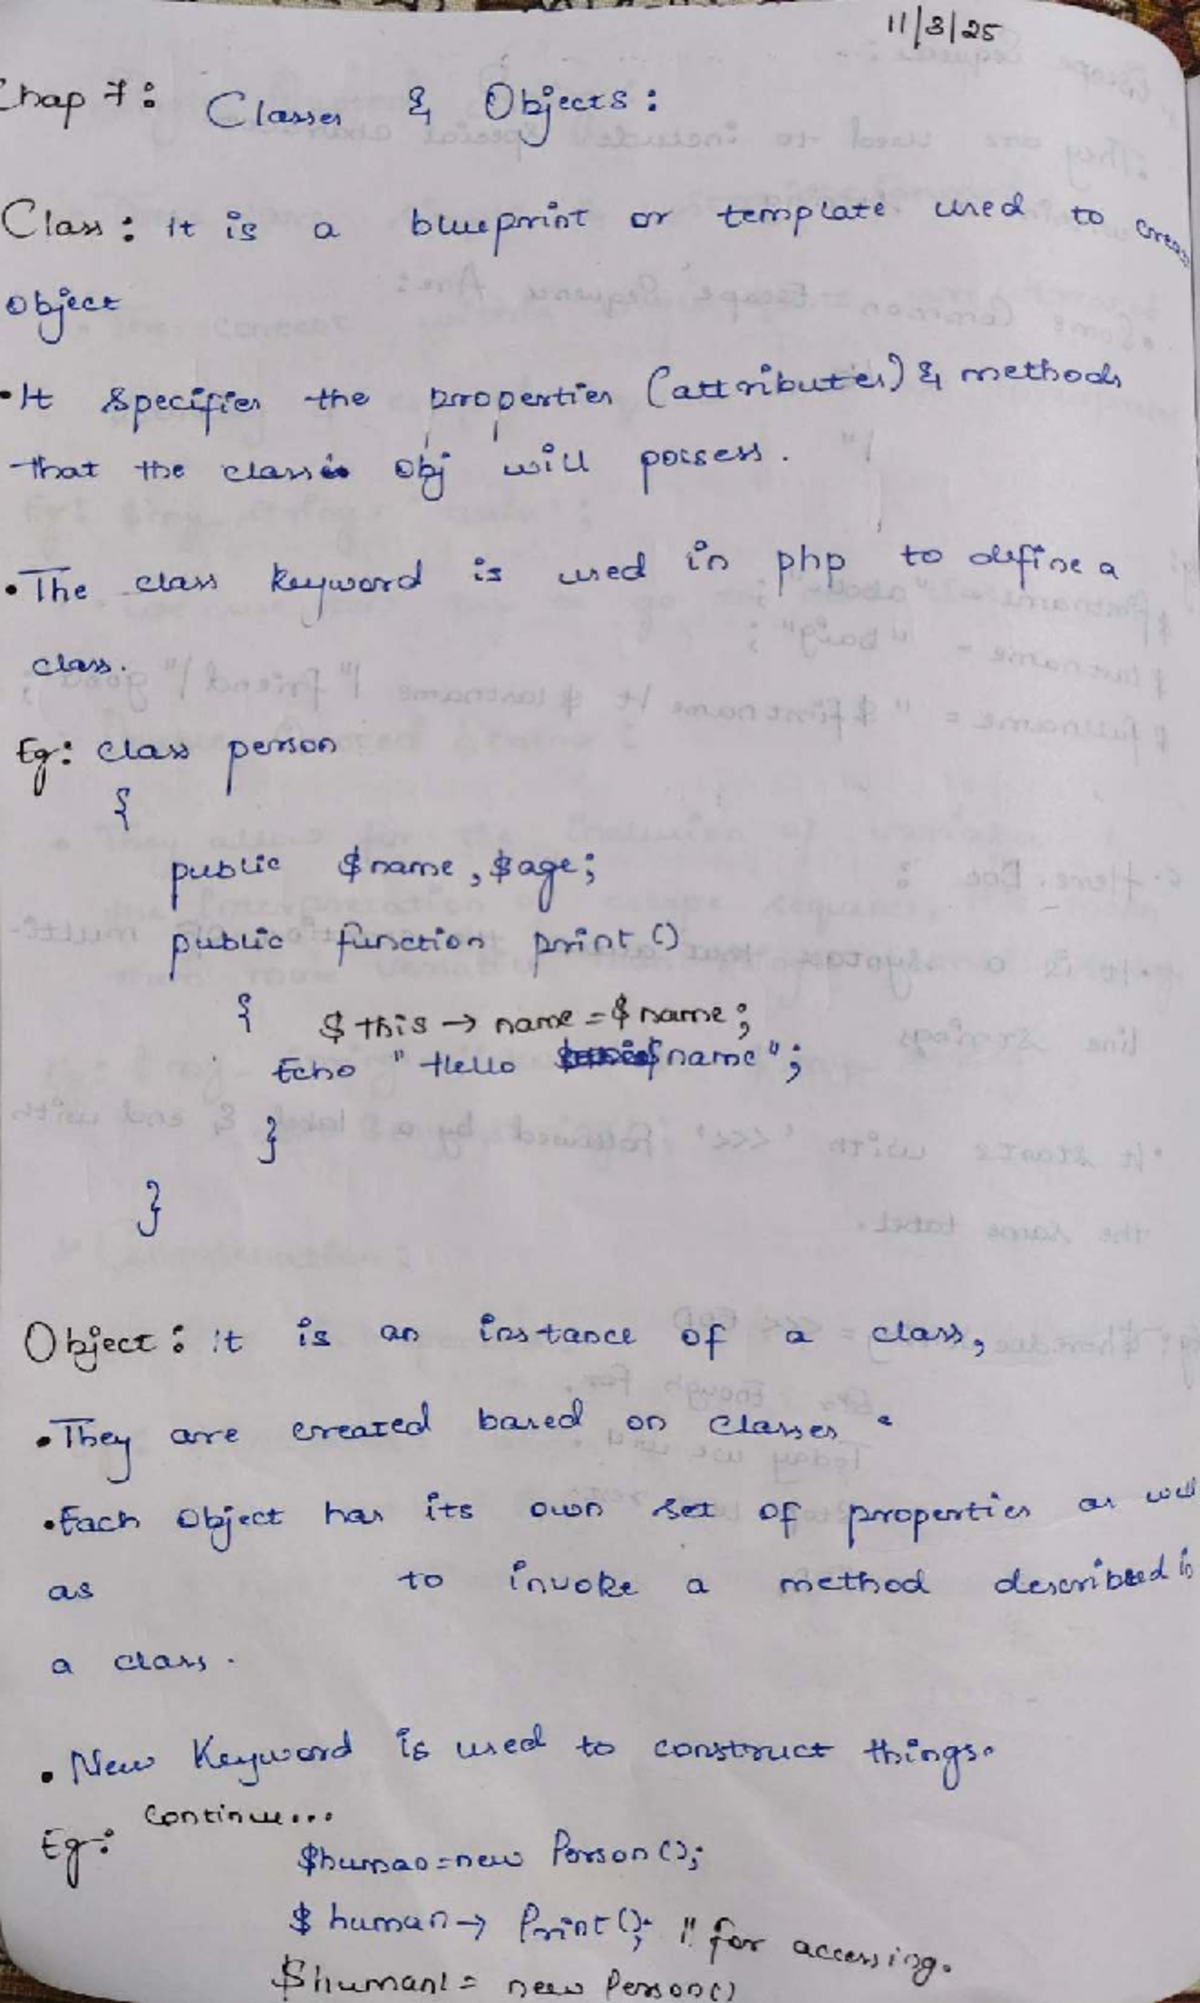 11/3/25
Chap 7: Classes & Objects:
Class: It is a blueprint or template used to creat
object
•It specifies the properties (attributes) & methods
that the class obj will possess.
•The class keyword is used in php to define a
class.
Eg: class person
{
public $name, $age;
public function print()
{ $this → name = $name;
Echo "Hello $name";
}
}
Object: it is an instance of a class,
•They are created based on classes.
•Each object has its own set of properties as well
as to invoke a method described in
a class.
•New Keyword is used to construct things.
Continue...
Eg:
$human=new Person();
$human→ Print(); // for accessing.
$human1= new Person()